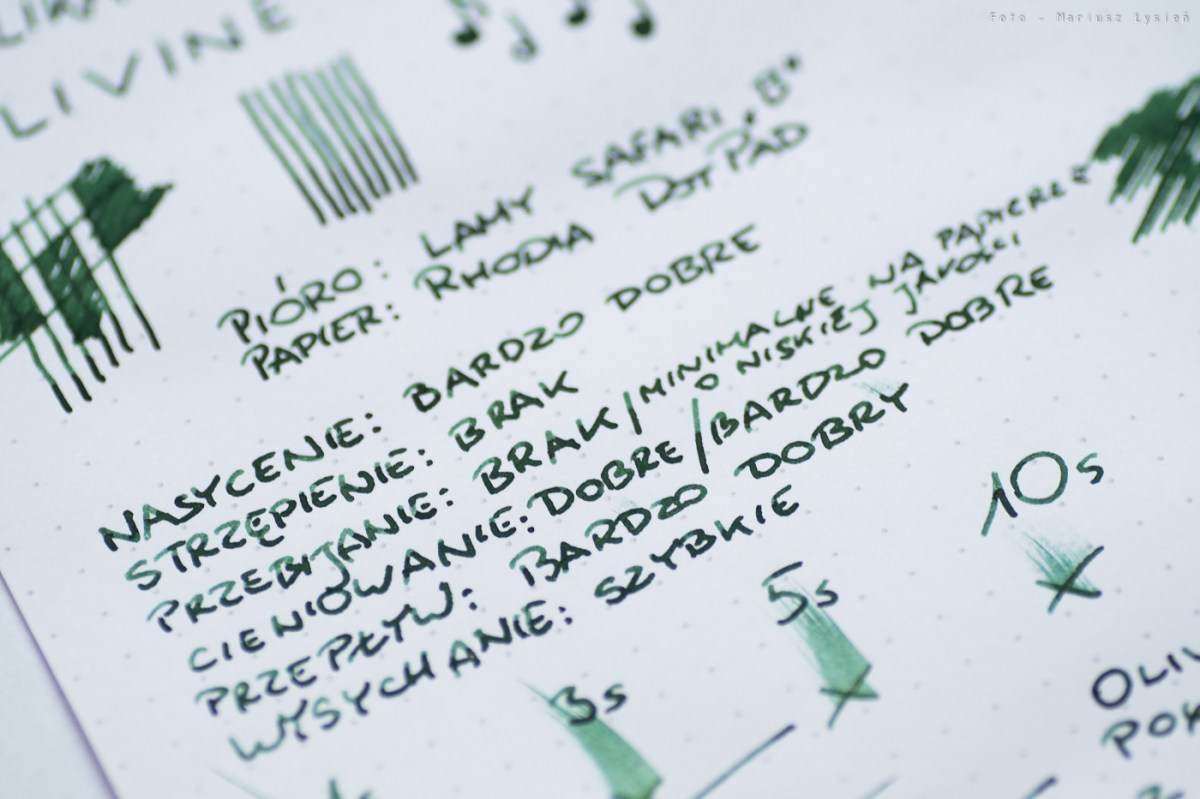 Foto - Mariusz Łysień
LIVINE
PIÓRO: LAMY SAFARI „B"
PAPIER: RHODIA DOT PAD
NASYCENIE: BARDZO DOBRE
STRZĘPIENIE: BRAK
PRZEBIJANIE: BRAK/MINIMALNE NA PAPIERZE
O NISKIEJ JAKOŚCI
CIENIOWANIE: DOBRE/BARDZO DOBRE
PRZEPŁYW: BARDZO DOBRY
WYSYCHANIE: SZYBKIE
10s
5s
3s
OLIV